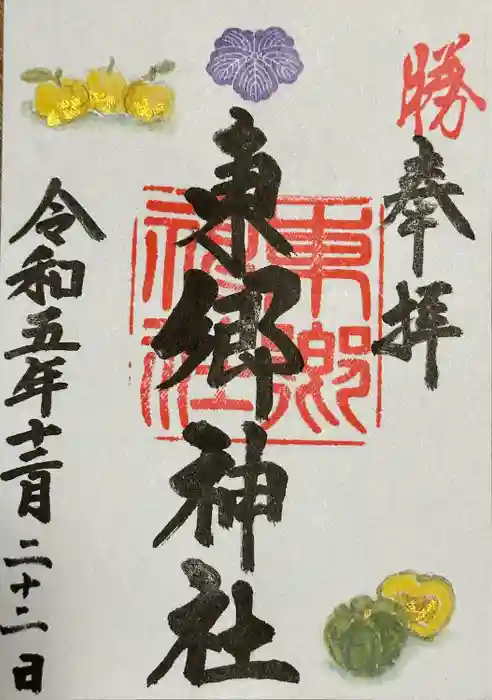 勝
奉拝
東郷神社
東郷神社
令和五年十二月二十二日